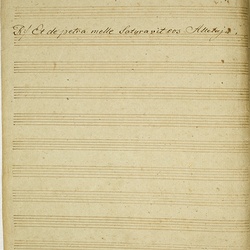 R/ Et de petra melle saturavit eos Alleluja.